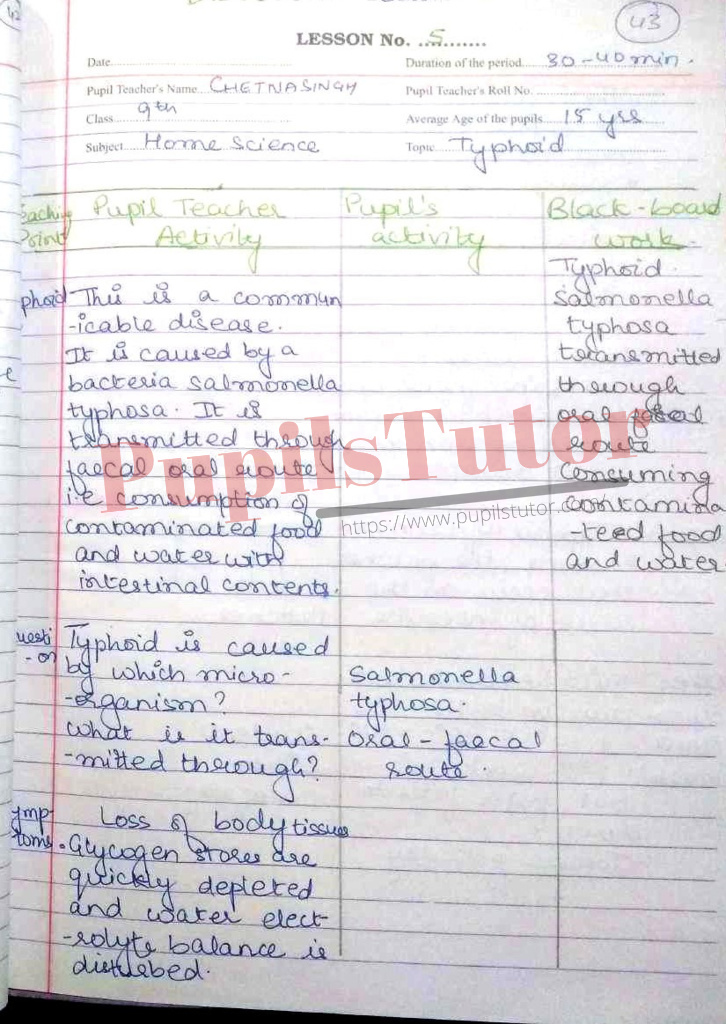 43
LESSON No. 5
Date
Duration of the period 30-40 min.
Pupil Teacher's Name CHETNA SINGH
Pupil Teacher's Roll No.
Class 9th
Average Age of the pupils 15 yrs
Subject Home Science
Topic Typhoid
eaching Point
Pupil Teacher Activity
Pupil's activity
Black-board work
phoid This is a commun
-icable disease.
It is caused by a
bacteria Salmonella
typhosa. It is
transmitted through
faecal oral route
i.e consumption of
contaminated food
and water with
intestinal contents.
Typhoid.
Salmonella
typhosa
transmitted
through
oral fecal
route
Consuming
contamina
-teed food
and water
uesti
-on
Typhoid is caused
by which micro-
-organism?
What is it trans-
-mitted through?
Salmonella
typhosa.
Oral-faecal
route.
ymp-
toms
Loss of body tissues
. Glycogen stores are
quickly depleted
and water elect-
-rolyte balance is
disturbed.
PupilsTutor
https://www.pupilstutor.c